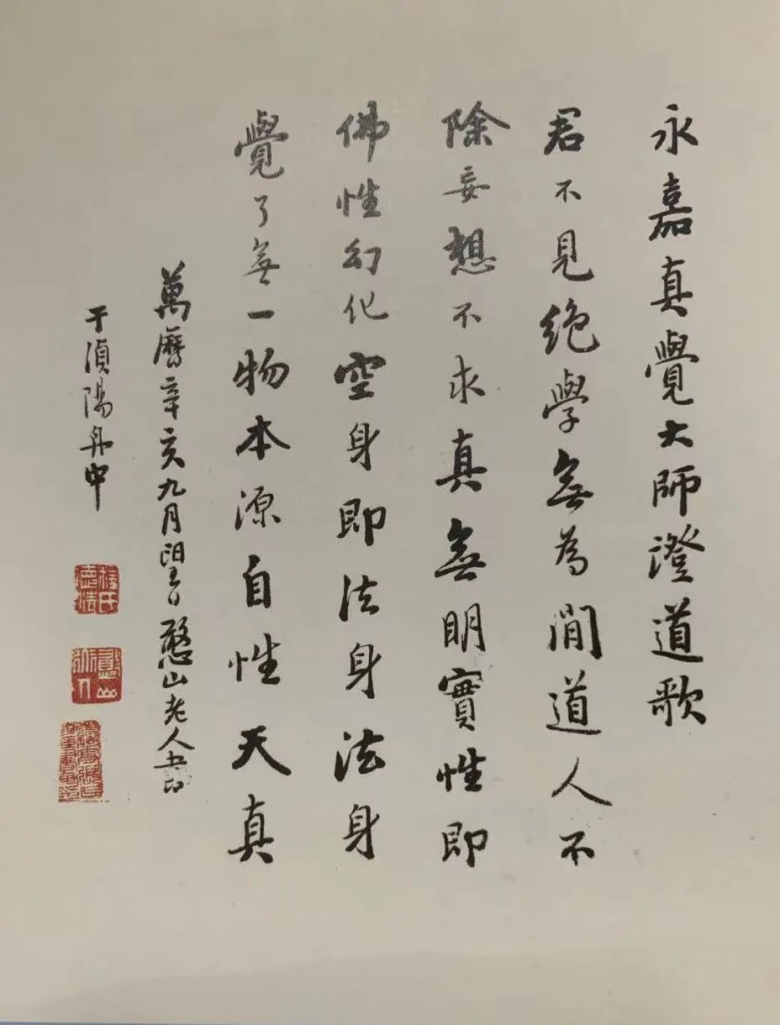 永嘉真覺大師澄道歌
君不見絕學無為閒道人不
除妄想不求真無明實性即
佛性幻化空身即法身法身
覺了無一物本源自性天真
萬曆辛亥九月 憨山老人書
于湞陽舟中